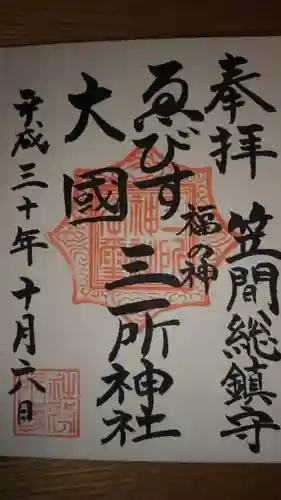 奉拝 笠間総鎮守
福の神
ゑびす
大國
三所神社
平成三十年十月六日